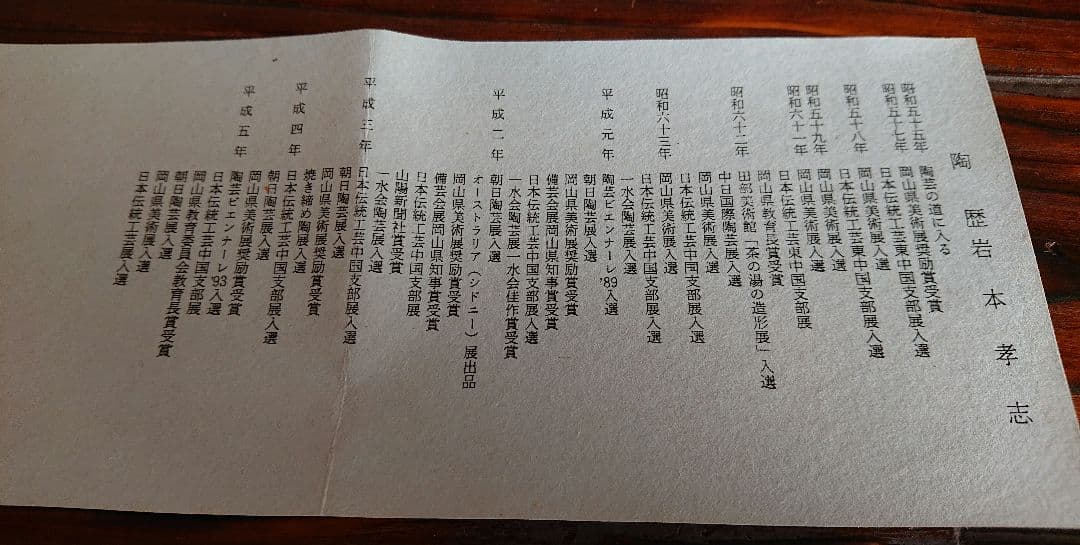 陶歴
岩本孝志
昭和五十五年 陶芸の道に入る
昭和五十七年 岡山県美術展奨励賞受賞
日本伝統工芸東中国支部展入選
昭和五十八年 岡山県美術展入選
日本伝統工芸東中国支部展入選
昭和五十九年 岡山県美術展入選
昭和六十一年 岡山県美術展入選
日本伝統工芸東中国支部展
岡山県教育長賞受賞
昭和六十二年 田部美術館「茶の湯の造形展」入選
中日国際陶芸展入選
岡山県美術展入選
日本伝統工芸中国支部展入選
昭和六十三年 岡山県美術展入選
日本伝統工芸中国支部展入選
一水会陶芸展入選
平成元年 陶芸ビエンナーレ'89入選
朝日陶芸展入選
岡山県美術展奨励賞受賞
備芸会展岡山県知事賞受賞
日本伝統工芸中国支部展入選
一水会陶芸展一水会佳作賞受賞
平成二年 朝日陶芸展入選
オーストラリア(シドニー)展出品
岡山県美術展奨励賞受賞
備芸会展岡山県知事賞受賞
日本伝統工芸中国支部展
山陽新聞社賞受賞
一水会陶芸展入選
平成三年 日本伝統工芸中国支部展入選
朝日陶芸展入選
岡山県美術展奨励賞受賞
焼き締め陶展入選
平成四年 日本伝統工芸中国支部展入選
朝日陶芸展入選
岡山県美術展奨励賞受賞
平成五年 陶芸ビエンナーレ'93入選
日本伝統工芸中国支部展
岡山県教育委員会教育長賞受賞
朝日陶芸展入選
岡山県美術展入選
日本伝統工芸展入選